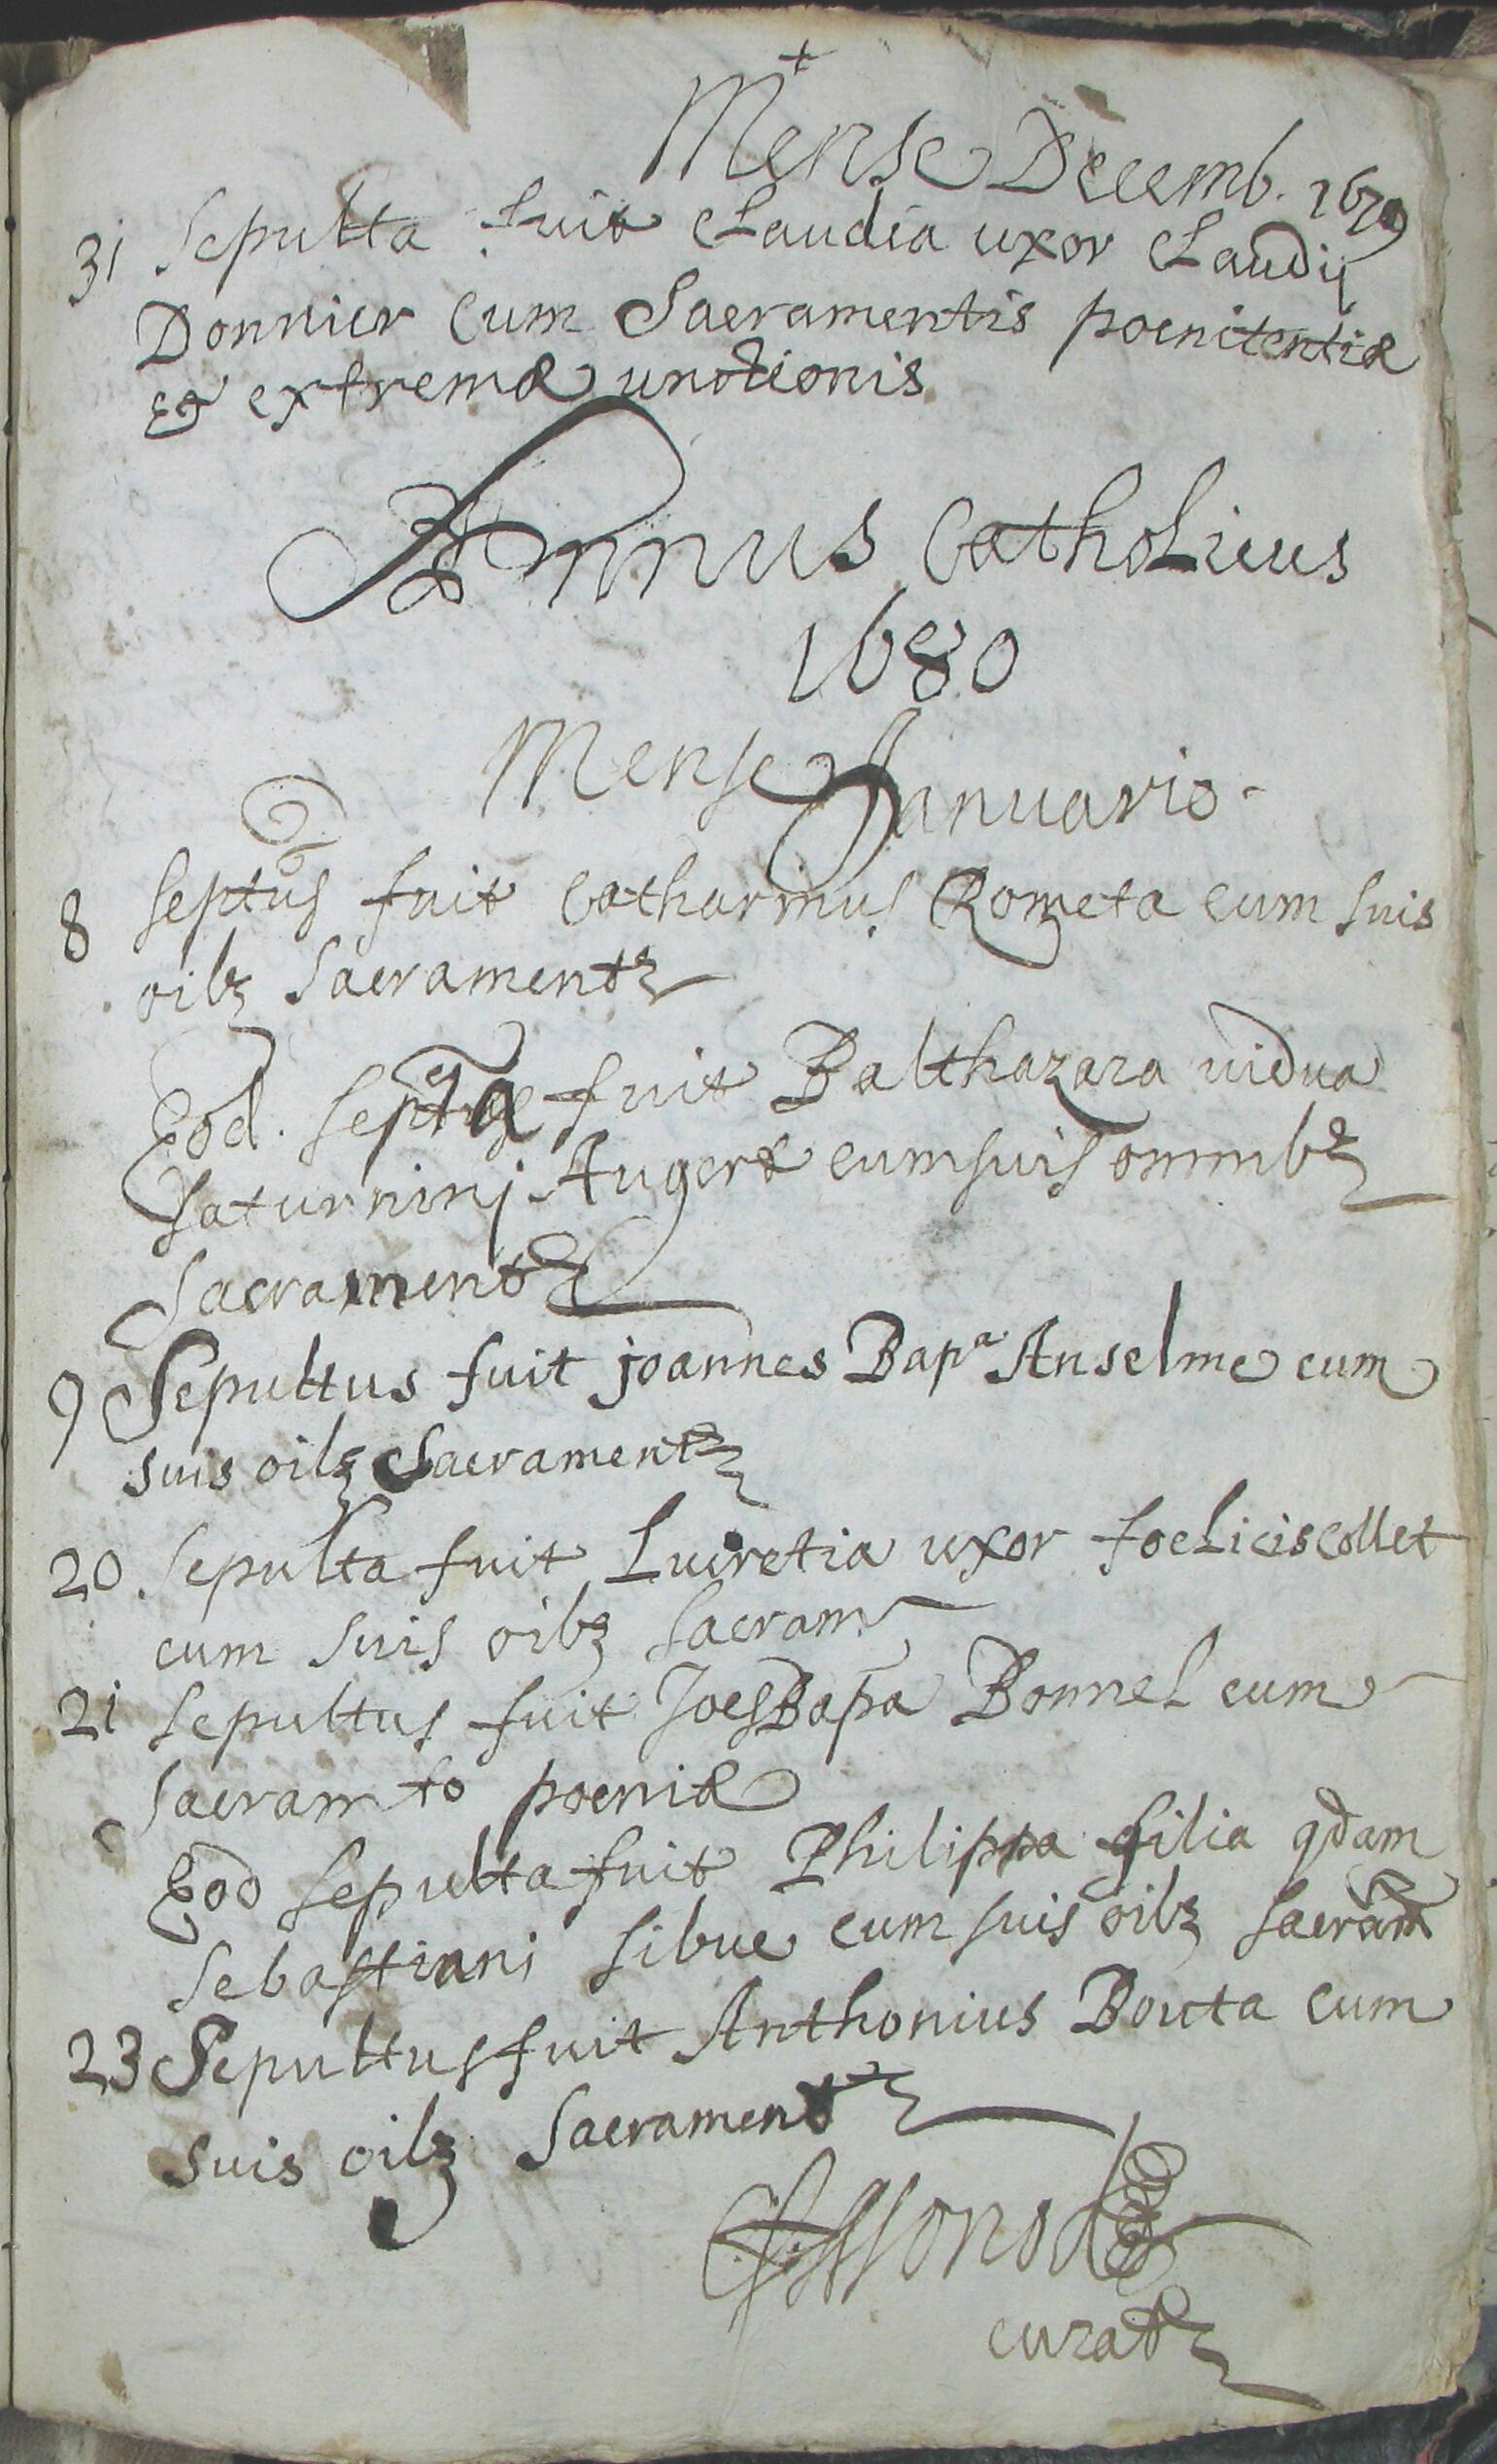 +
Mense Decemb. 1679
31 Sepulta fuit Claudia uxor Claudij
Donnier cum Sacramentis poenitentiæ
et extremæ unctionis
Annus Catholicus
1680
Mense Januario
8 septus fuit Catharinus Rometa cum suis
oibz Sacramentz
Eod. septa fuit Balthazara vidua
Saturninj Augere cum suis omnibz
Sacramentz
9 Sepultus fuit joannes Bapa Anselme cum
suis oibz Sacramentz
20 Sepulta fuit Lucretia uxor foelicis Collet
cum suis oibz sacram
21 Sepultus fuit Joes Bapa Bonnel cum
Sacramto poeniæ
Eod sepulta fuit Philippa filia qdam
Sebastiani Sibue cum suis oibz Sacram
23 Sepultus fuit Anthonius Bouta cum
suis oibz Sacramentz
curatz